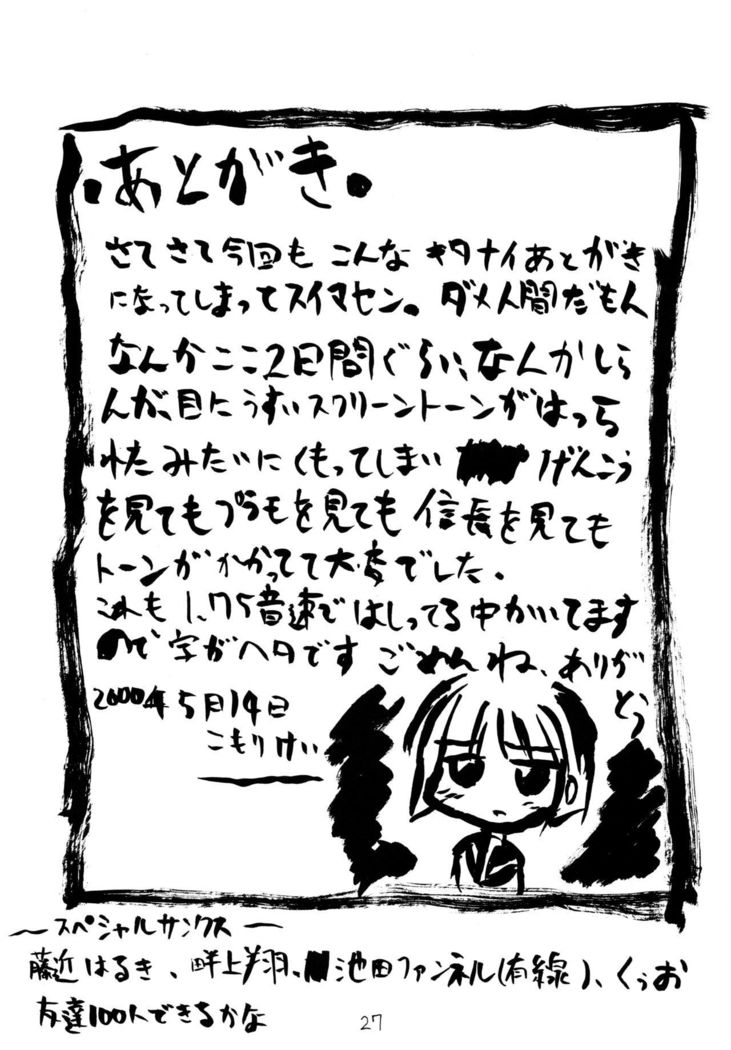 .あとがき。
さてさて今回も こんな キタナイあとがき
になってしまってスイマセン。ダメ人間だもん
なんかここ2日間ぐらい、なんかしら
んが、目にうすいスクリーントーンがはっら
れたみたいにくもってしまい げんこう
を見てもプラモを見ても信長を見ても
トーンがかかってて大変でした。
これも1.75音速ではしってる中かいてます
ので字がヘタです ごめんね、ありが
とう
2000年5月14日
こもりけい
〜スペシャルサンクス〜
藤近はるき、畔上翔、池田ファンネル(有線)、くぅお
友達100人できるかな
27